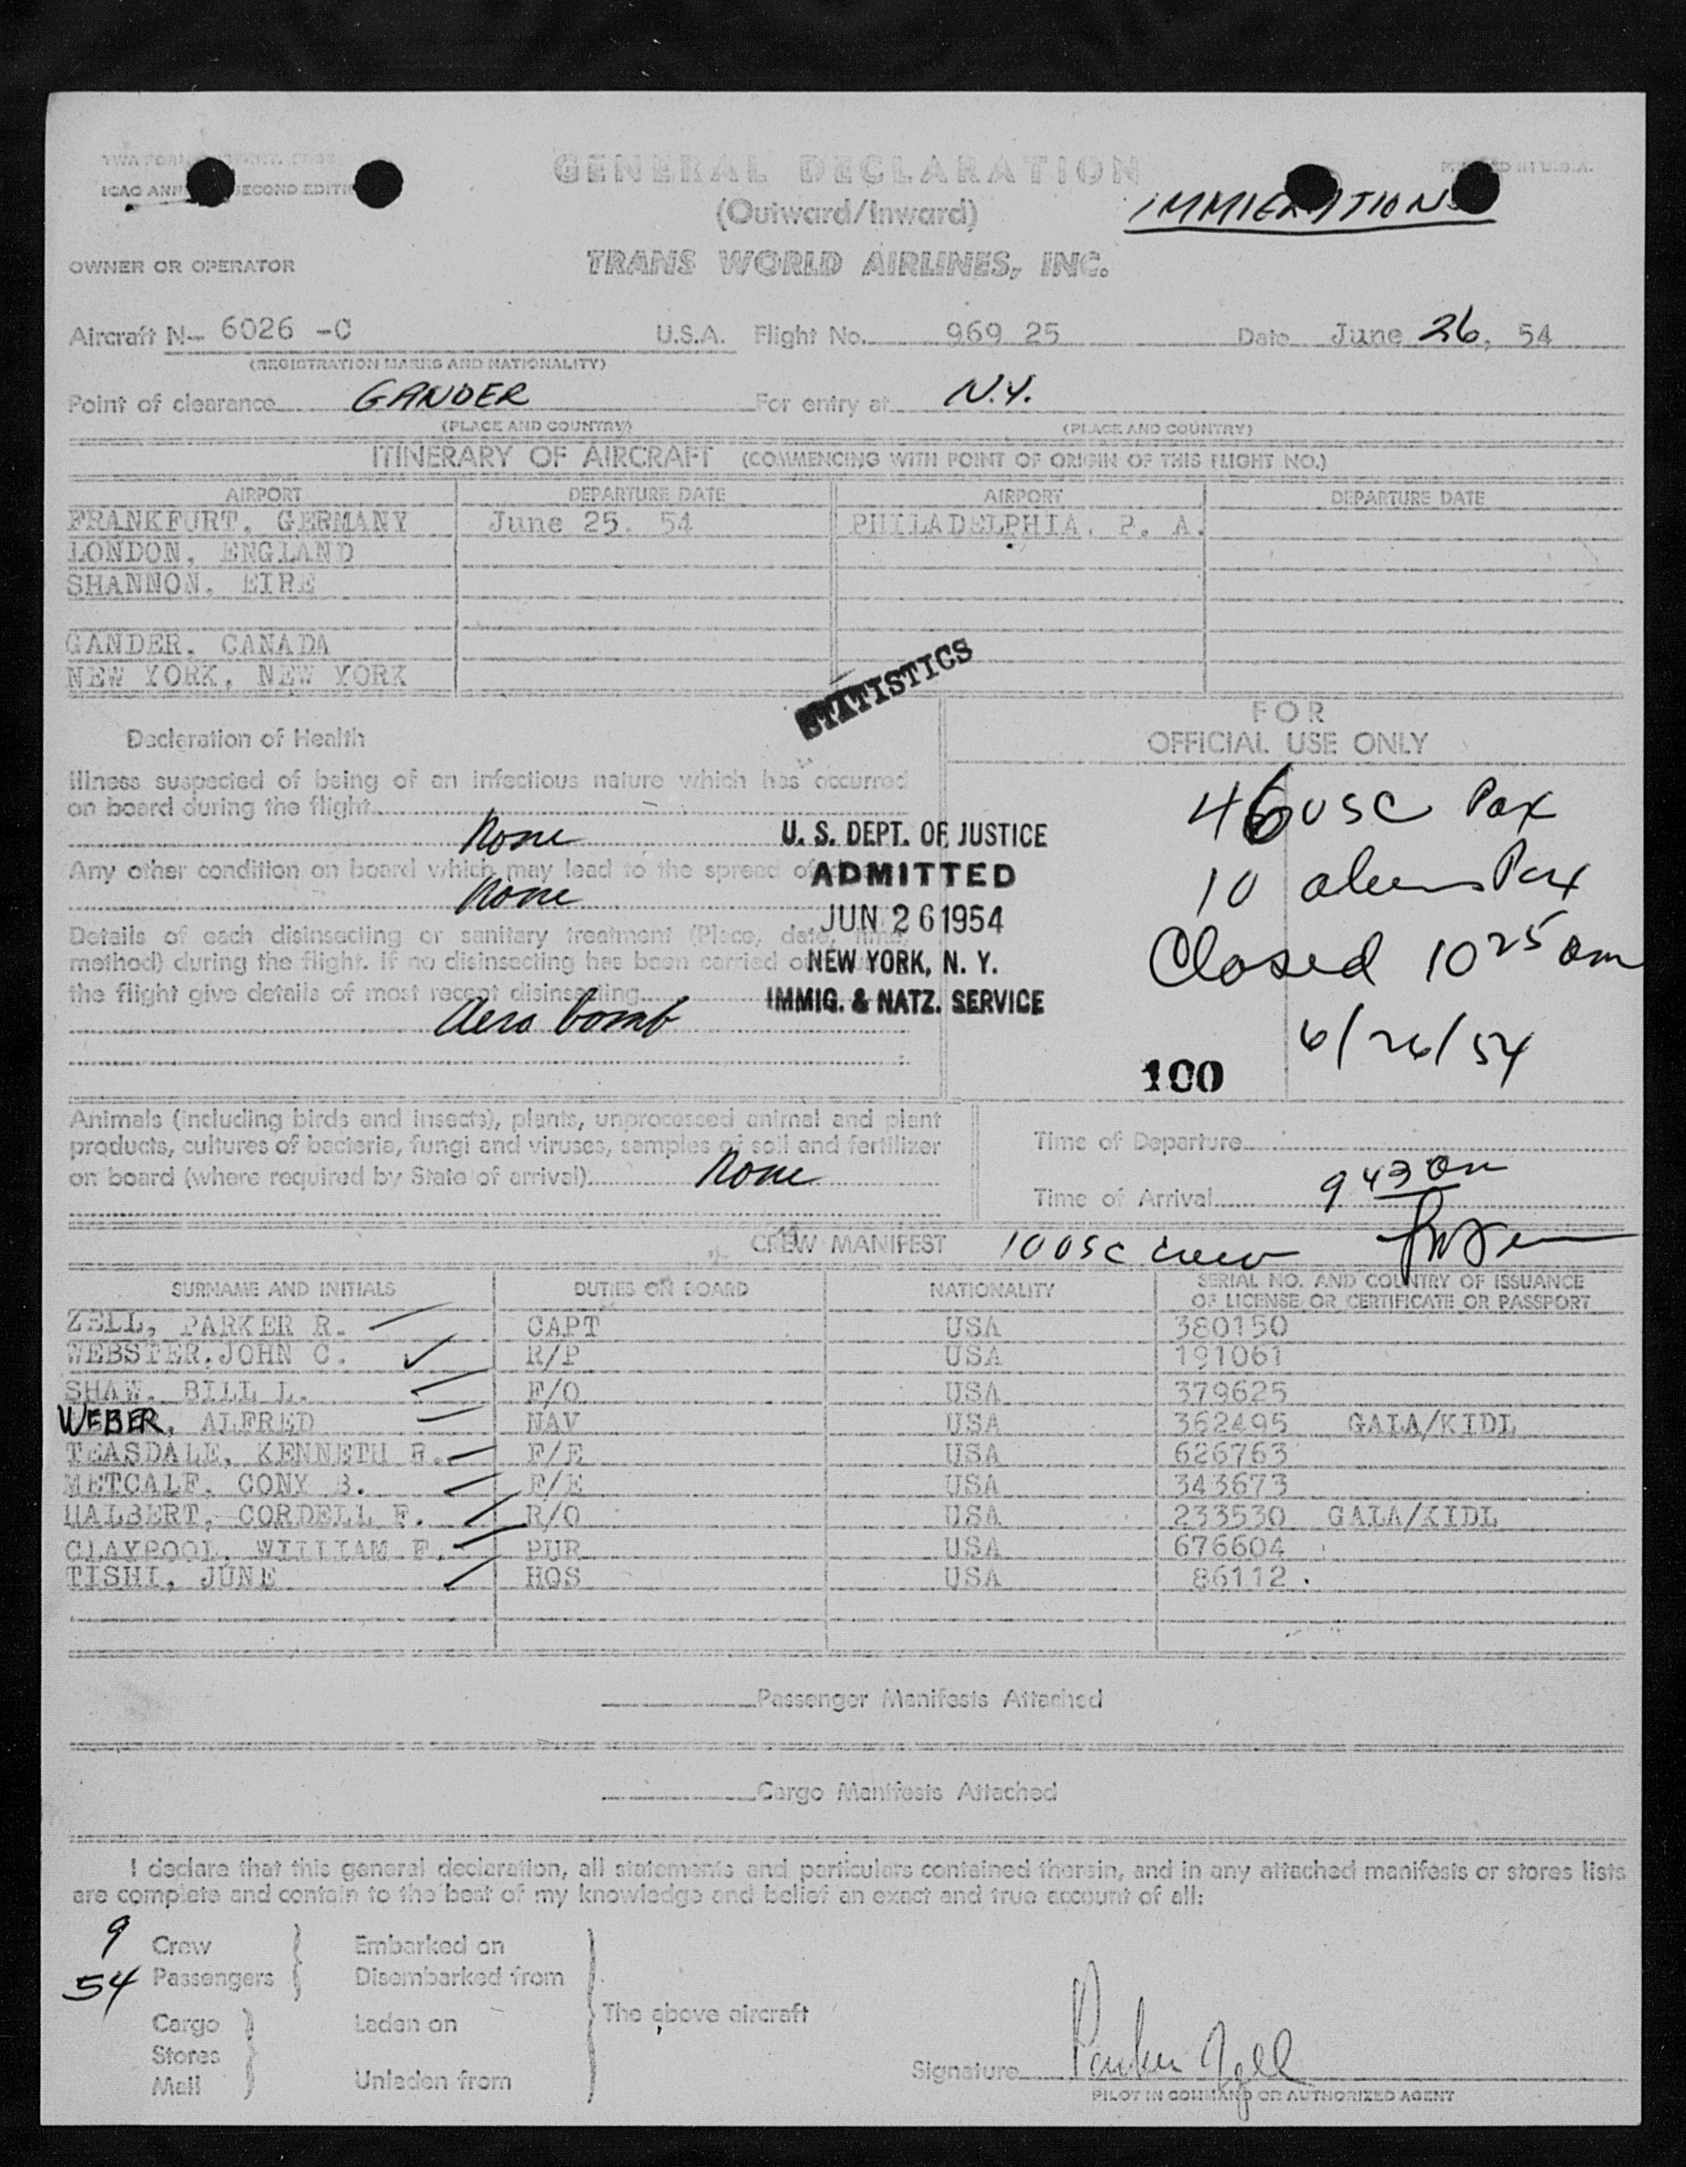 GENERAL DECLARATION
(Outward/Inward)
IMMIGRATION
TRANS WORLD AIRLINES, INC.
OWNER OR OPERATOR
Aircraft N- 6026 -C U.S.A. Flight No. 969 25 Date June 26, 54
(REGISTRATION MARKS AND NATIONALITY)
Point of clearance GANDER For entry at N.Y.
(PLACE AND COUNTRY) (PLACE AND COUNTRY)
ITINERARY OF AIRCRAFT (COMMENCING WITH POINT OF ORIGIN OF THIS FLIGHT NO.)
AIRPORT DEPARTURE DATE AIRPORT DEPARTURE DATE
FRANKFURT, GERMANY June 25. 54 PHILADELPHIA, P. A.
LONDON, ENGLAND
SHANNON, EIRE
GANDER. CANADA
NEW YORK, NEW YORK
STATISTICS
FOR
OFFICIAL USE ONLY
Declaration of Health
Illness suspected of being of an infectious nature which has occurred
on board during the flight
None
Any other condition on board which may lead to the spread of
None
Details of each disinsecting or sanitary treatment (Place, date, time,
method) during the flight. If no disinsecting has been carried
the flight give details of most recent disinsecting
Aero bomb
U. S. DEPT. OF JUSTICE
ADMITTED
JUN 26 1954
NEW YORK, N. Y.
IMMIG. & NATZ. SERVICE
46 USC Pax
10 aliens Pax
Closed 10 25 am
6/26/54
100
Animals (including birds and insects), plants, unprocessed animal and plant
products, cultures of bacteria, fungi and viruses, samples of soil and fertilizer
on board (where required by State of arrival) None
Time of Departure
Time of Arrival 9 43 am
CREW MANIFEST 10 USC crew
SURNAME AND INITIALS DUTIES ON BOARD NATIONALITY SERIAL NO. AND COUNTRY OF ISSUANCE
OF LICENSE OR CERTIFICATE OR PASSPORT
ZELL, PARKER R. CAPT USA 380150
WEBSTER, JOHN C. R/P USA 191061
SHAW. BILL L. F/O USA 379625
WEBER, ALFRED NAV USA 362495 GALA/KIDL
TEASDALE, KENNETH R. F/E USA 626763
METCALF, CONY B. F/E USA 343673
HALBERT, CORDELL F. R/O USA 233530 GALA/KIDL
CLAYPOOL, WILLIAM F. PUR USA 676604
TISHI, JUNE HOS USA 86112.
Passenger Manifests Attached
Cargo Manifests Attached
I declare that this general declaration, all statements and particulars contained therein, and in any attached manifests or stores lists
are complete and contain to the best of my knowledge and belief an exact and true account of all:
9 Crew Embarked on
54 Passengers Disembarked from
The above aircraft
Cargo Laden on
Stores
Mail Unladen from
Signature Parker Zell
PILOT IN COMMAND OR AUTHORIZED AGENT